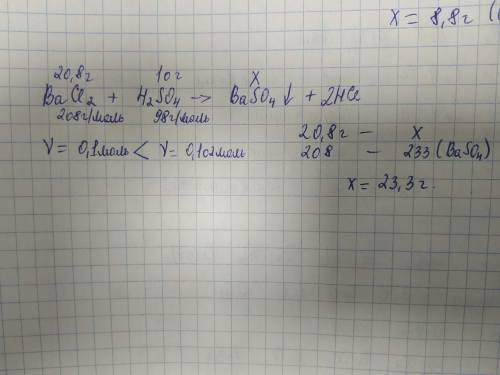 X = 8,8г (
20,8г 10г X
BaCl₂ + H₂SO₄ -> BaSO₄↓ + 2HCl
208г/моль 98г/моль
ν = 0,1моль < ν = 0,102моль
20,8г - X
208 - 233 (BaSO₄)
X = 23,3г.